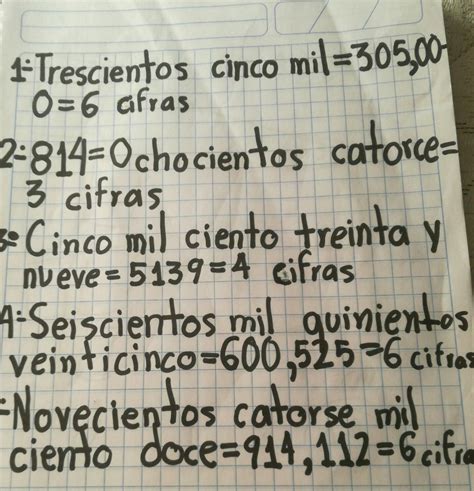 1=Trescientos cinco mil=305,00-
0=6 cifras
2=814=Ochocientos catorce=
3 cifras
3=Cinco mil ciento treinta y
nueve=5139=4 cifras
4=Seiscientos mil quinientos
veinticinco=600,525=6 cifras
=Novecientos catorse mil
ciento doce=914,112=6 cifra